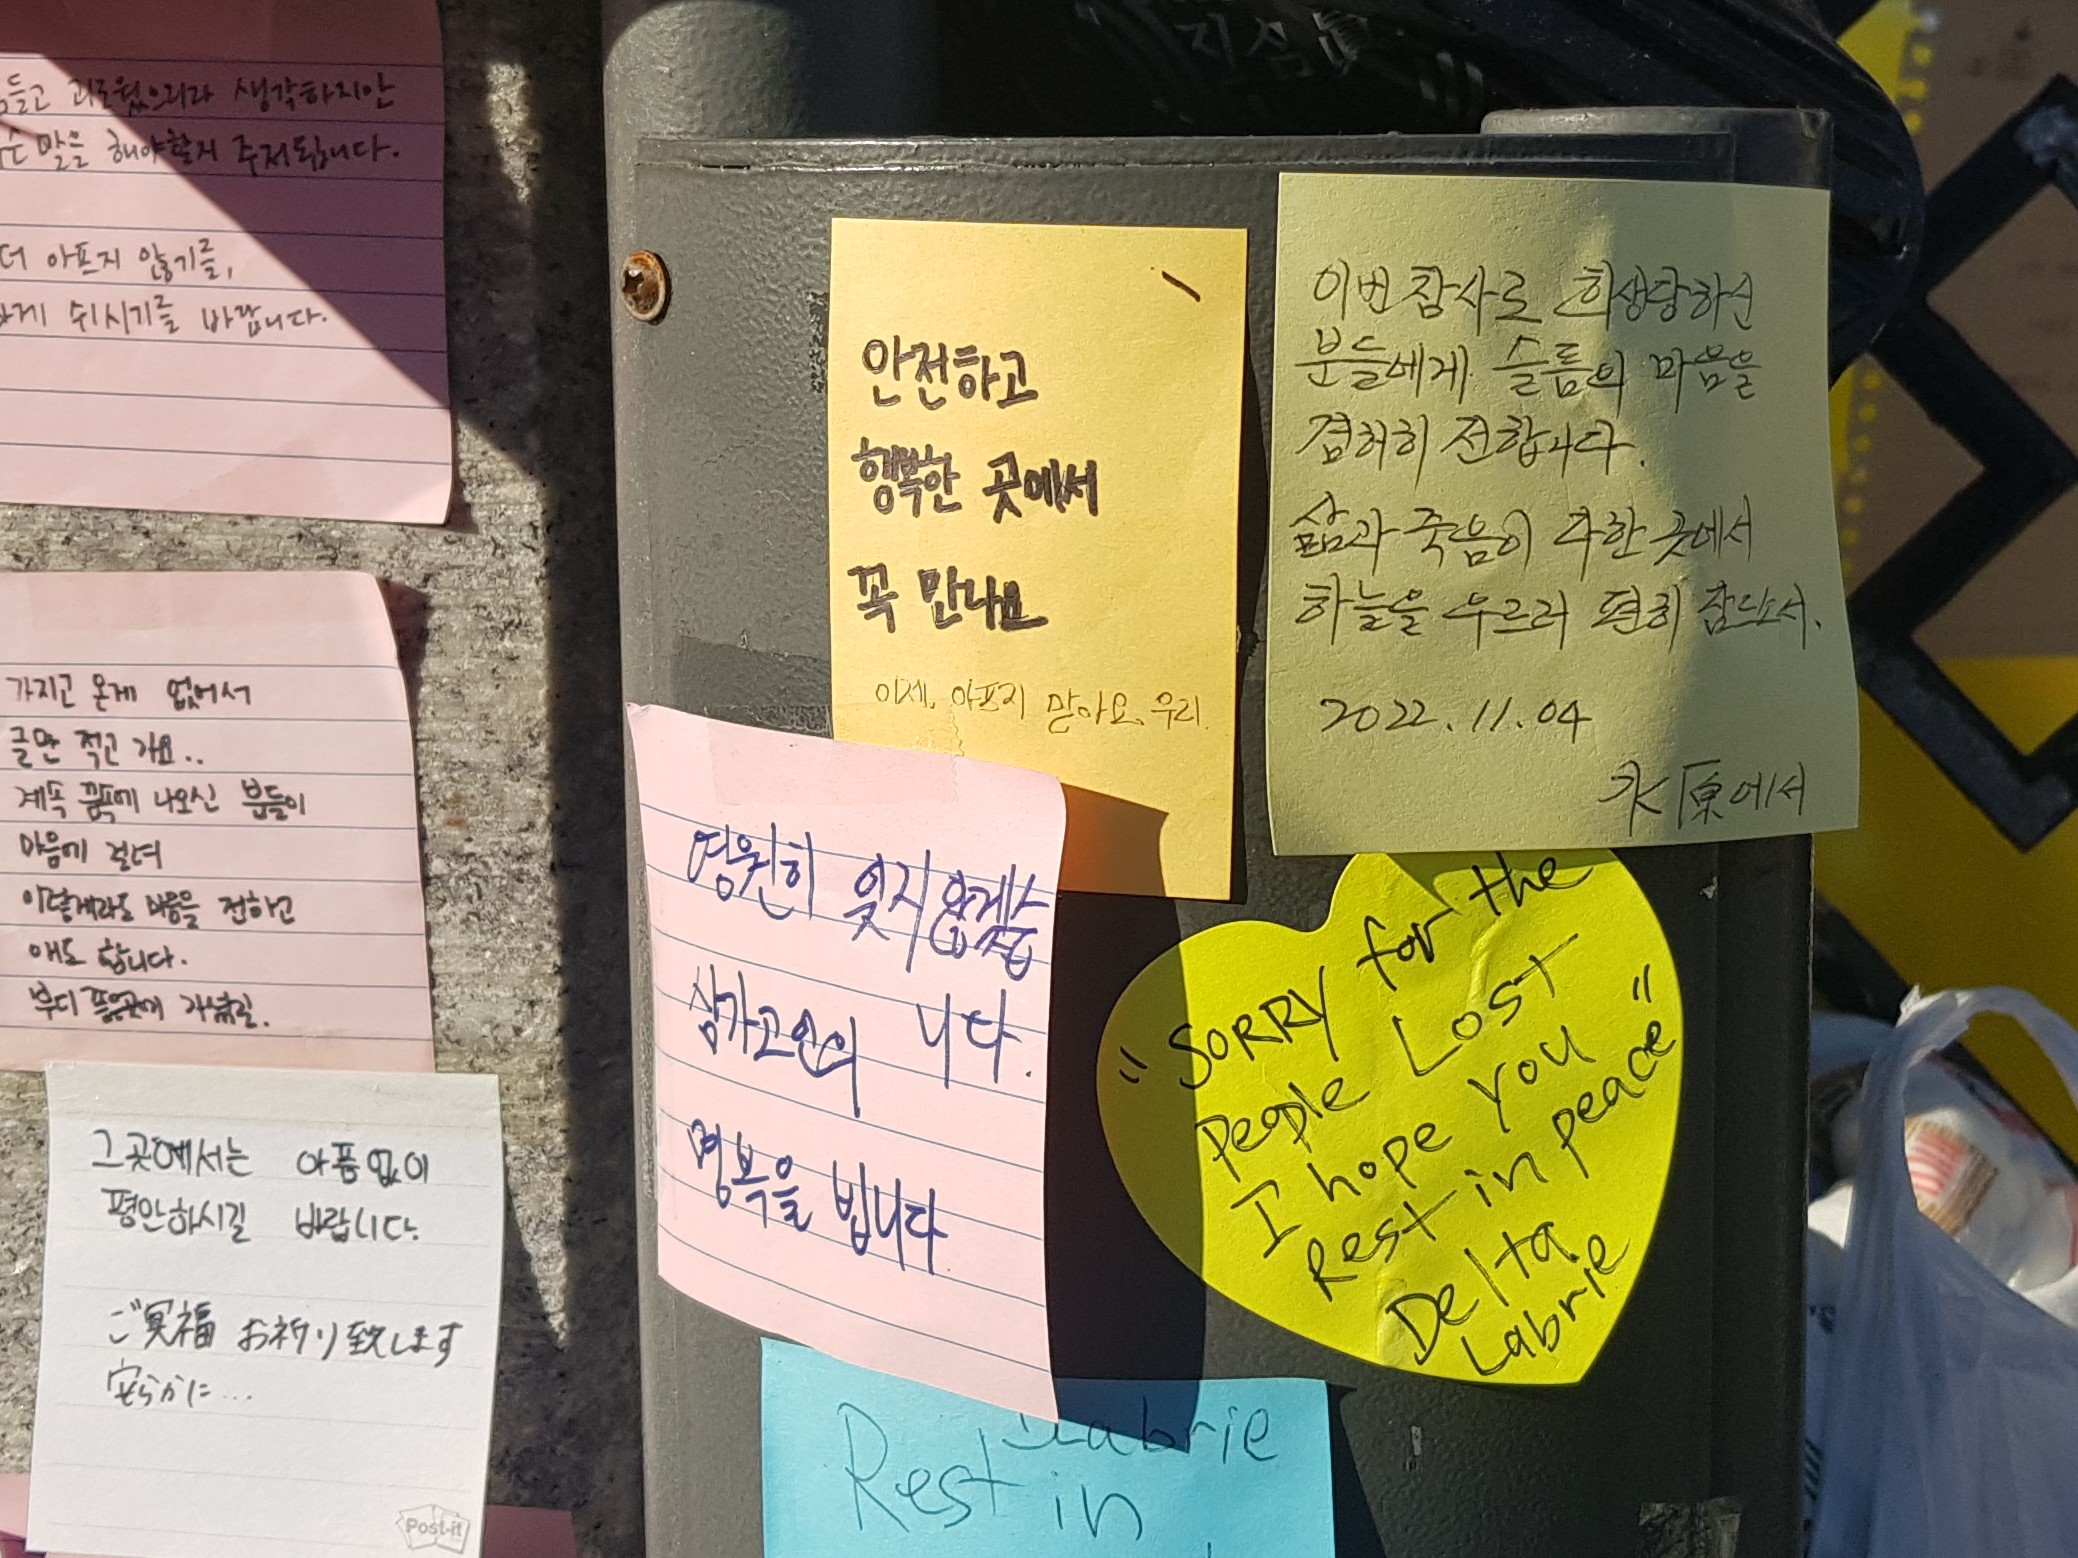 괴로웠으리라 생각하지만
말을 해야할지 주저됩니다.
더 아프지 않기를,
하게 쉬시기를 바랍니다.
가지고 온게 없어서
글만 적고 가요..
계속 꿈속에 나오신 분들이
마음에 걸려
이렇게라도 마음을 전하고
애도 합니다.
부디 좋은곳에 가셨길.
그곳에서는 아픔없이
평안하시길 바랍니다.
ご冥福お祈り致します
安らかに...
Post-it
안전하고
행복한 곳에서
꼭 만나요
이제, 아프지 말아요, 우리.
이번 참사로 희생당하신
분들에게 슬픔의 마음을
겸허히 전합니다.
삶과 죽음이 구한 곳에서
하늘을 우르러 편히 잠드소서.
2022.11.04
水原에서
영원히 잊지않겠습
니다.
삼가고인의
명복을 빕니다
"SORRY for the
People Lost
I hope you
Rest in peace"
Delta
Labrie
Labrie
Rest in